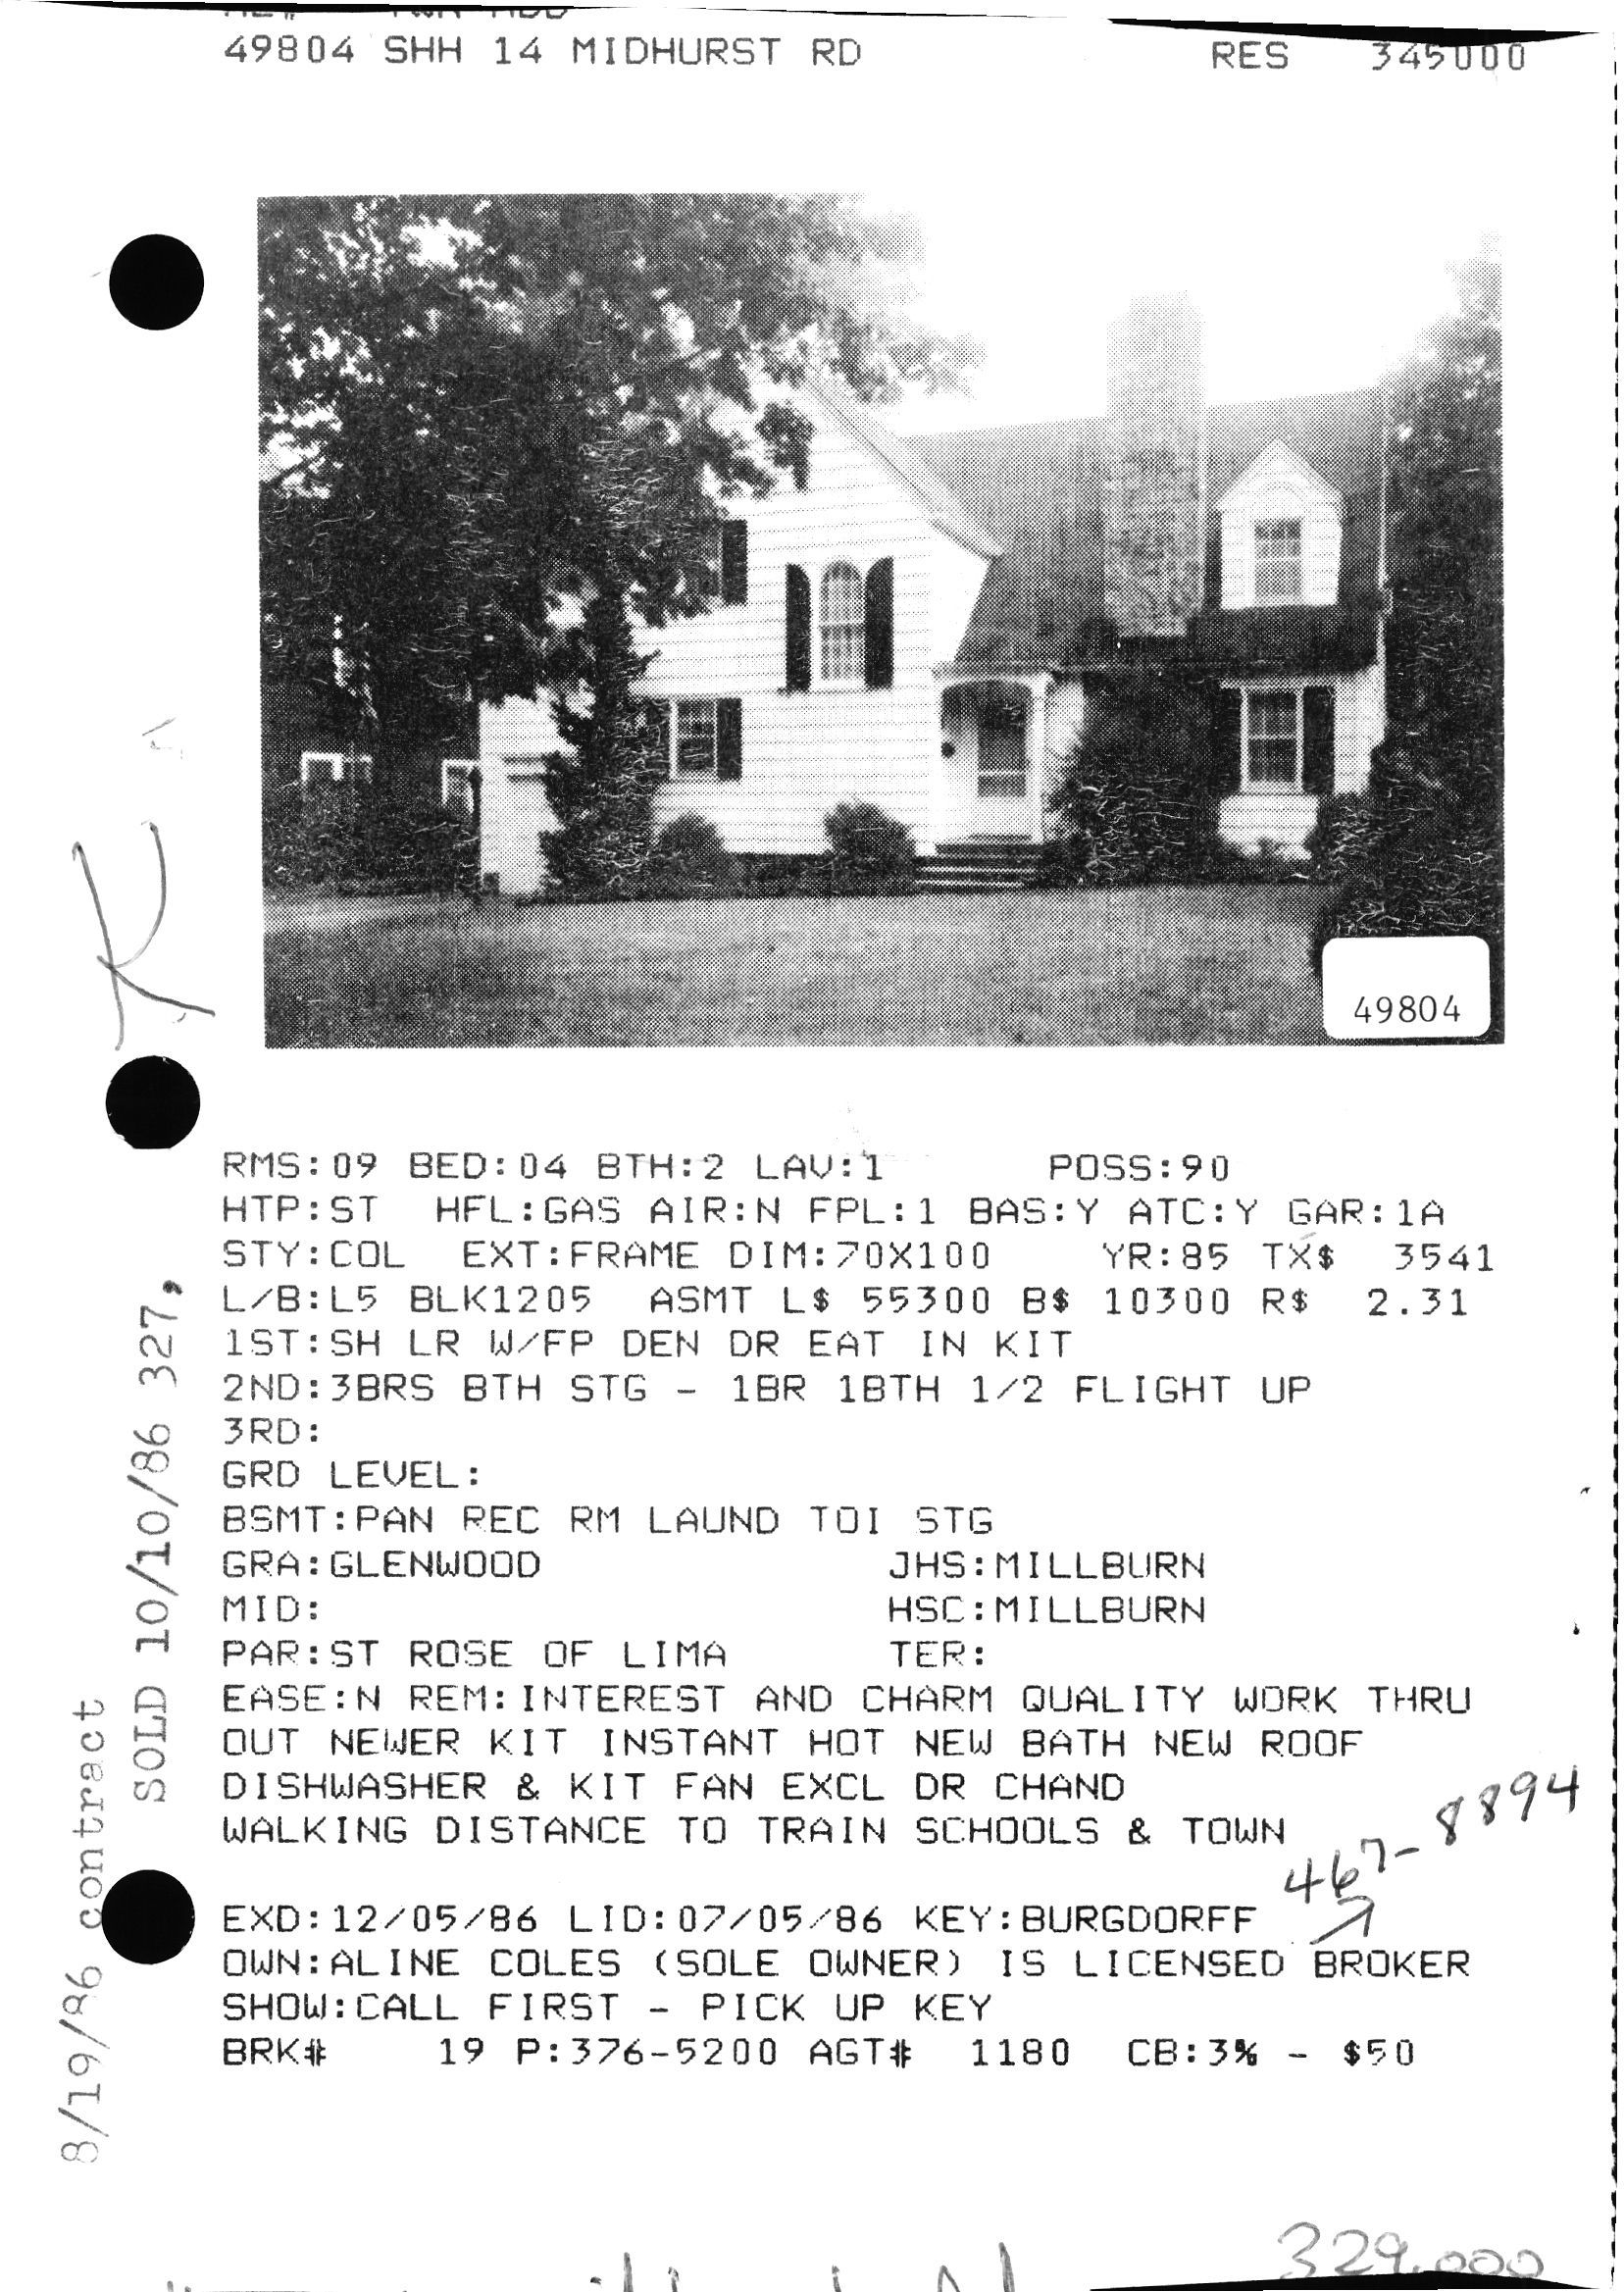 49804 SHH 14 MIDHURST RD RES 345000
49804
RMS:09 BED:04 BTH:2 LAV:1 POSS:90
HTP:ST HFL:GAS AIR:N FPL:1 BAS:Y ATC:Y GAR:1A
STY:COL EXT:FRAME DIM:70X100 YR:85 TX$ 3541
L/B:L5 BLK1205 ASMT L$ 55300 B$ 10300 R$ 2.31
1ST:SH LR W/FP DEN DR EAT IN KIT
2ND:3BRS BTH STG - 1BR 1BTH 1/2 FLIGHT UP
3RD:
GRD LEVEL:
BSMT:PAN REC RM LAUND TOI STG
GRA:GLENWOOD JHS:MILLBURN
MID: HSC:MILLBURN
PAR:ST ROSE OF LIMA TER:
EASE:N REM:INTEREST AND CHARM QUALITY WORK THRU
OUT NEWER KIT INSTANT HOT NEW BATH NEW ROOF
DISHWASHER & KIT FAN EXCL DR CHAND
WALKING DISTANCE TO TRAIN SCHOOLS & TOWN
467-8894
EXD:12/05/86 LID:07/05/86 KEY:BURGDORFF
OWN:ALINE COLES (SOLE OWNER) IS LICENSED BROKER
SHOW:CALL FIRST - PICK UP KEY
BRK# 19 P:376-5200 AGT# 1180 CB:3% - $50
329,000
K
8/19/86 contract
SOLD 10/10/86 327,